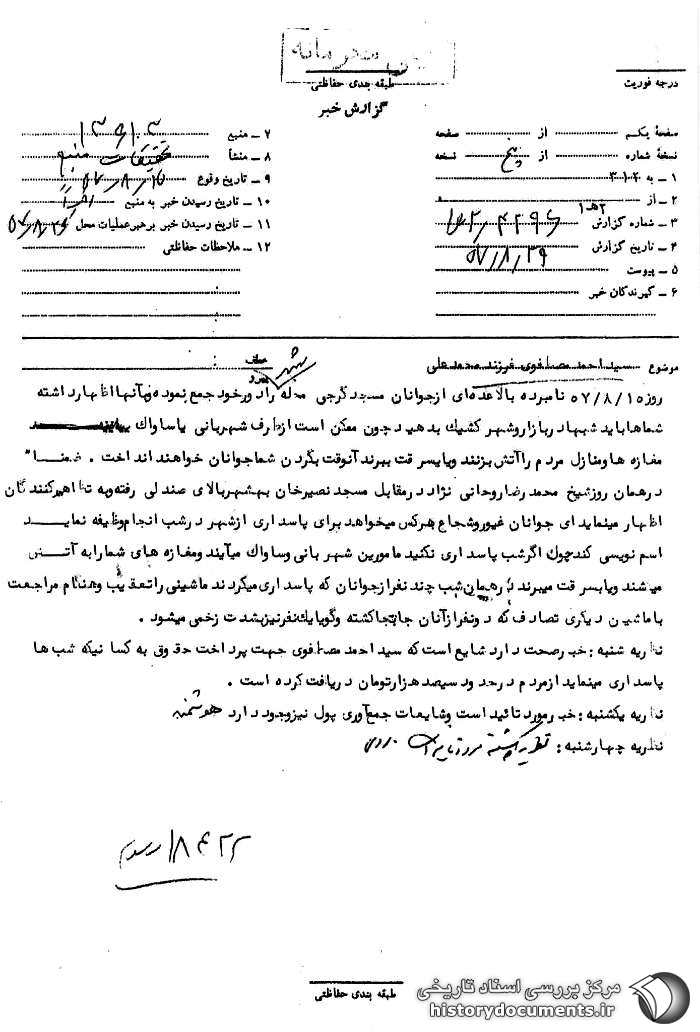 محرمانه
درجه فوریت
طبقه بندی حفاظتی
گزارش خبر
صفحهٔ یکم از صفحه
نسخهٔ شماره از پنج نسخه
۱ – به ۳۱۲
۲ – از ۲هـ۱
۳ – شماره گزارش
۴ – تاریخ گزارش ۵۷/۸/۲۹
۵ – پیوست
۶ – گیرندگان خبر
۷ – منبع ۱۳۹۱۳
۸ – منشأ تحقیقات منبع
۹ – تاریخ وقوع ۵۷/۸/۱۵
۱۰ – تاریخ رسیدن خبر به منبع اخیراً
۱۱ – تاریخ رسیدن خبر برهبر عملیات محل
۱۲ – ملاحظات حفاظتی
موضوع سید احمد مصطفوی فرزند محمد علی
روز ۵۷/۸/۱۵ نامبرده بالا عده‌ای ازجوانان مسجد گرجی محله را دورخود جمع نموده وبآنها اظهارداشته
شماها باید شبها دربازار وشهر کشیک بدهید چون ممکن است ازطرف شهربانی یا ساواک
مغازه ها ومنازل مردم را آتش بزنند ویا بسرقت ببرند آنوقت بگردن شما جوانان خواهند انداخت . ضمنا"
درهمان روز شیخ محمد رضا روحانی نژاد درمقابل مسجد نصیرخان بهشهر بالای صندلی رفته وبه تظاهرکنندگان
اظهار مینماید ای جوانان غیور وشجاع هرکس میخواهد برای پاسداری ازشهر درشب انجام وظیفه نماید
اسم نویسی کند چون اگر شب پاسداری نکنید مامورین شهربانی وساواک میآیند ومغازه های شما را به آتش
میکشند ویا بسرقت میبرند درهمان شب چند نفرازجوانان که پاسداری میکردند ماشینی را تعقیب وهنگام مراجعت
با ماشین دیگری تصادف که دونفرازآنان جابجا کشته وگویا یک نفرنیز بشدت زخمی میشود .
نظریه شنبه : خبر صحت دارد شایع است که سید احمد مصطفوی جهت پرداخت حقوق به کسانیکه شب ها
پاسداری مینماید ازمردم درحدود سیصد هزارتومان دریافت کرده است .
نظریه یکشنبه : خبر مورد تائید است وشایعات جمع آوری پول نیز وجود دارد هوشمند
نظریه چهارشنبه :
طبقه بندی حفاظتی
مرکز بررسی اسناد تاریخی
historydocuments.ir